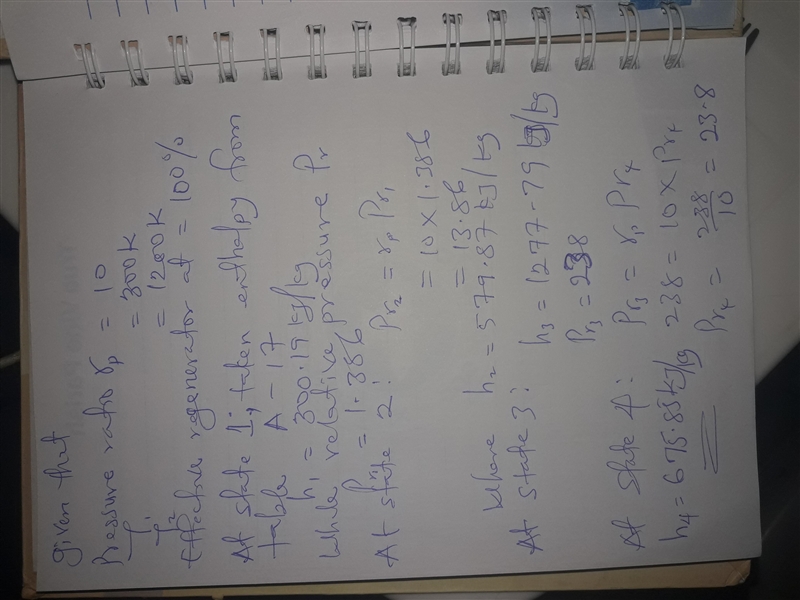 Given that
Pressure ratio rp = 10
T1 = 300K
T2 = 1200K
Effective regenerator at = 100%
At state 1; taken enthalpy from
table A-17
h1 = 300.19 kJ/kg
While relative pressure Pr
Pr1 = 1.386
At state 2: Pr2 = rp Pr1
= 10 x 1.386
= 13.86
Where h2 = 579.87 kJ/kg
At state 3: h3 = 1277-79 kJ/kg
Pr3 = 238
At state 4: Pr3 = r1, Pr4
h4 = 675.85 kJ/kg 238 = 10 x Pr4
Pr4 = 238/10 = 23.8